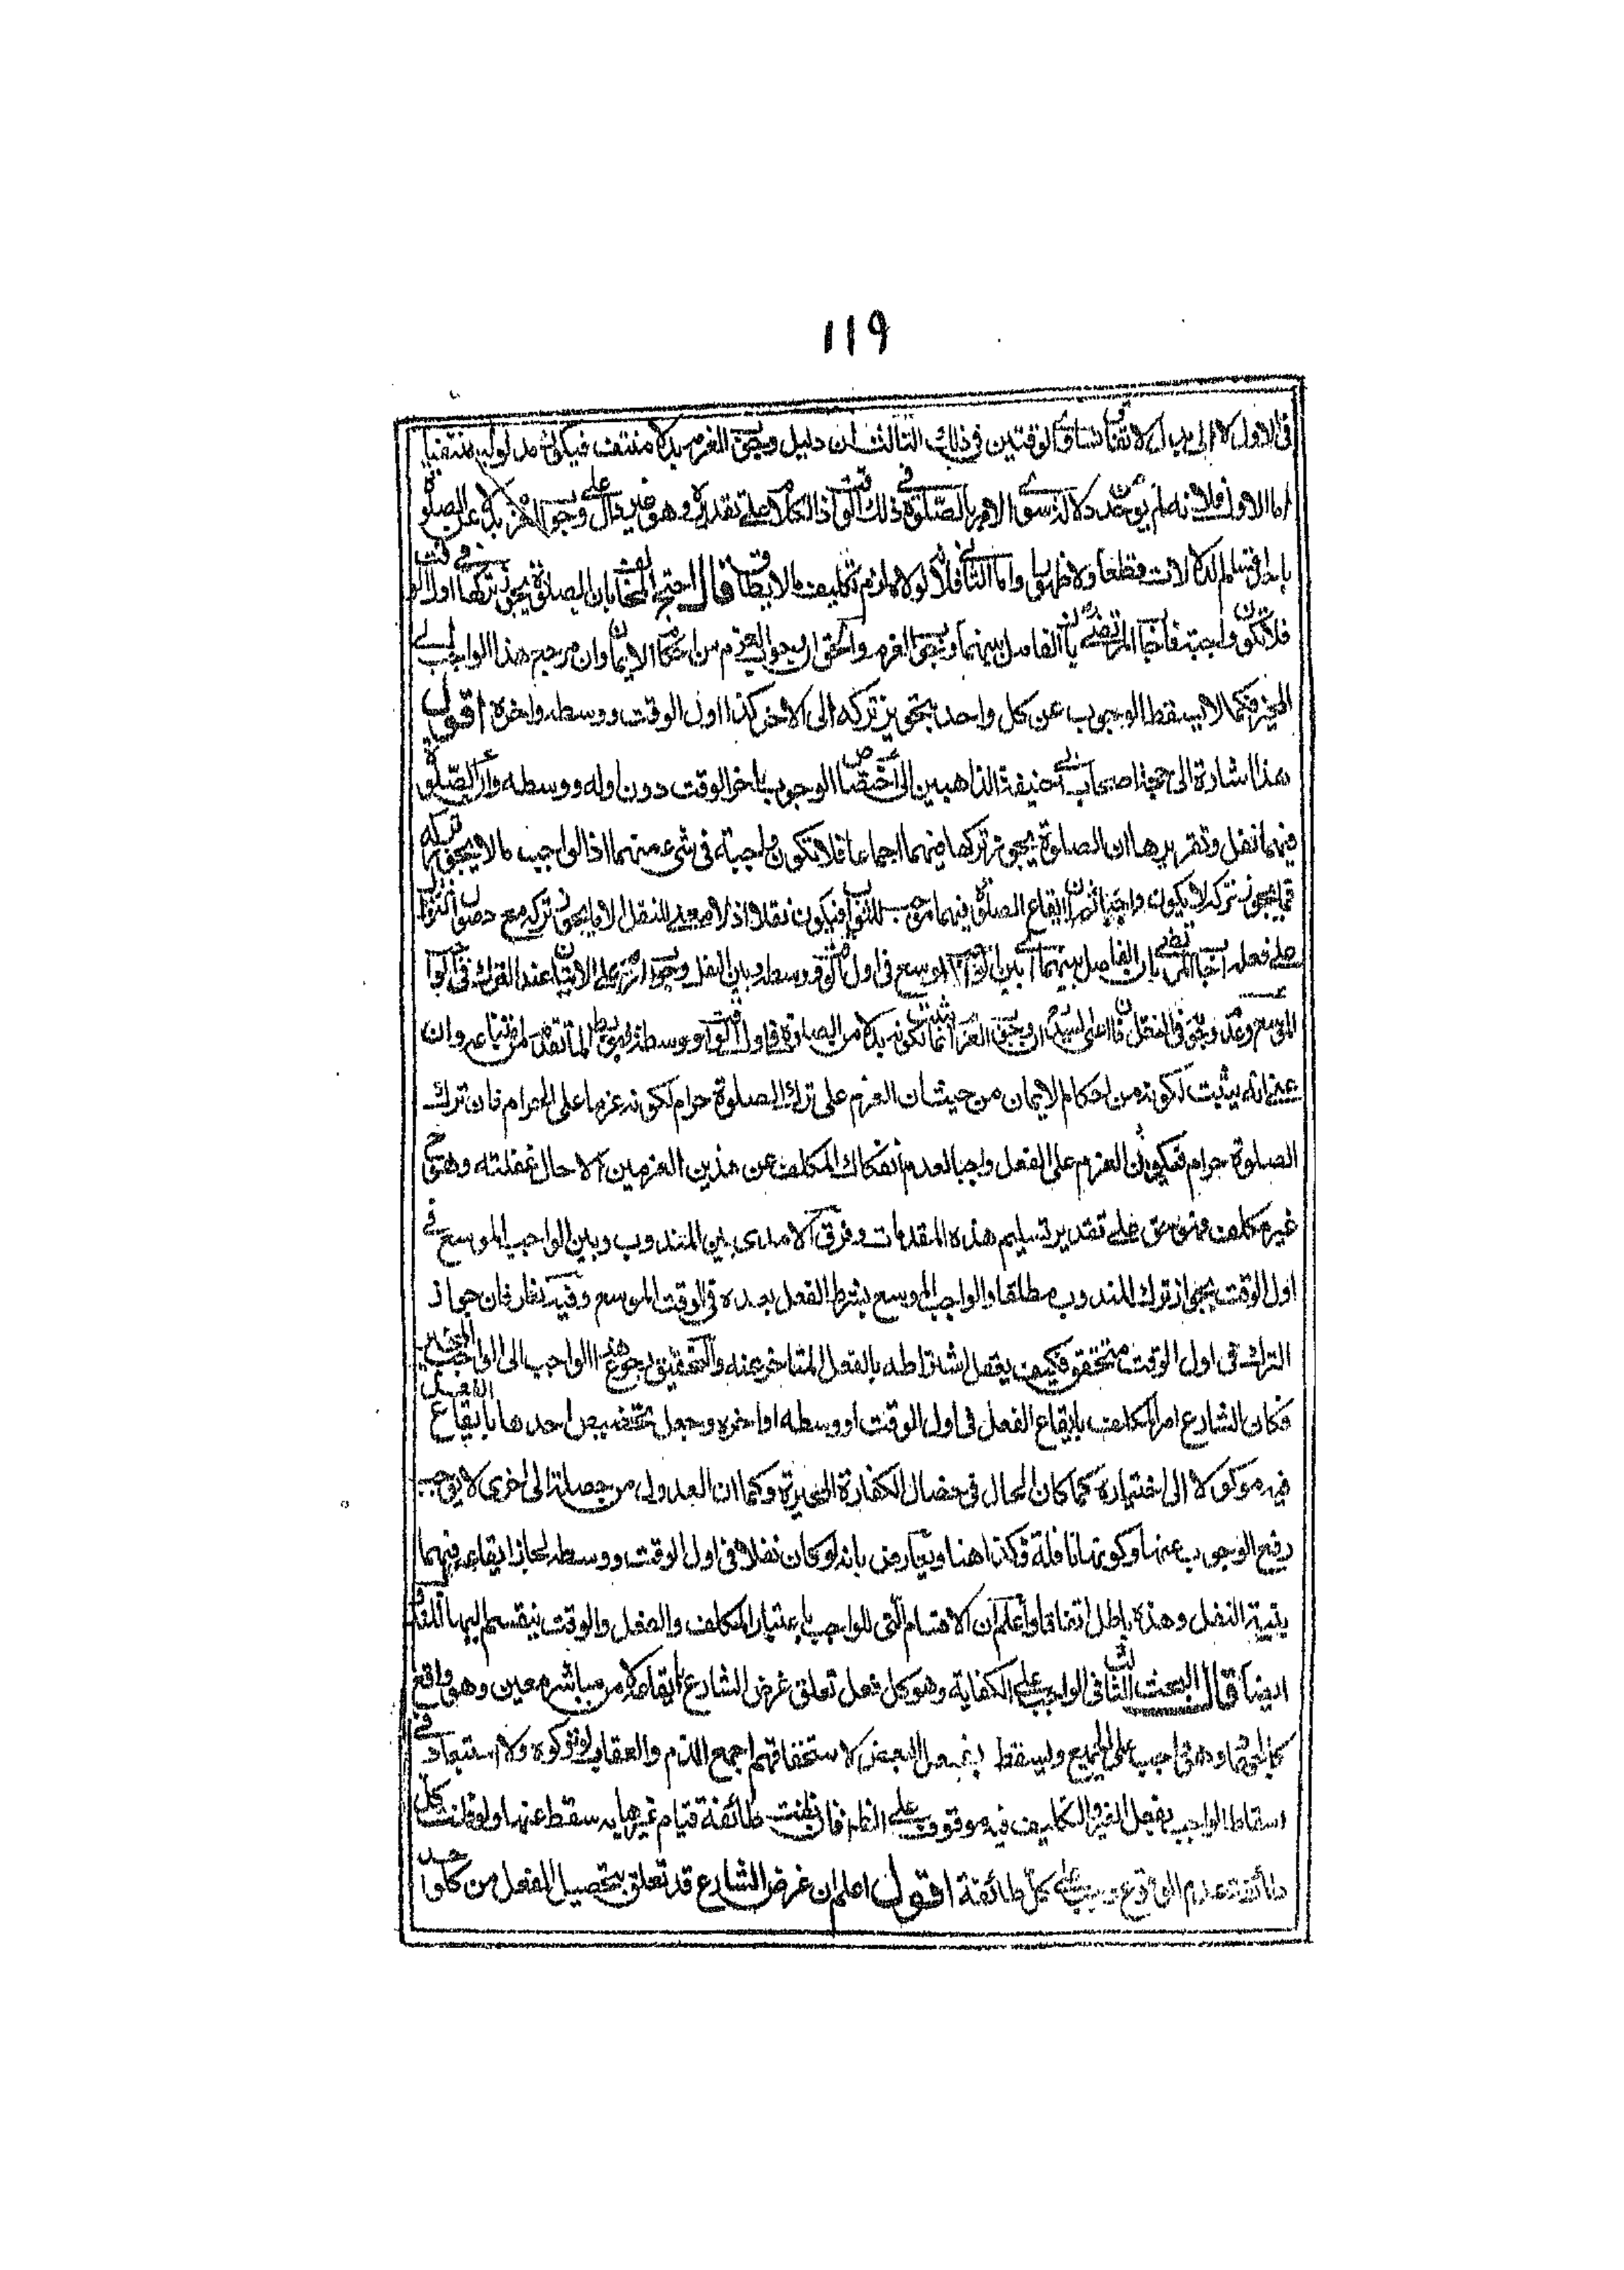 ١١٩
في الاول لا الى بدل لا تفاق تساوي الوقتين في ذلك الثالث ان دليل وجوب العزم بدلا منتف فيكون مدلوله منتفيا
اما الاول فلانه لم يوجد سوى الامر بالصلوة في ذلك الوقت اذ الكلام على تقديره وهو غير دال على وجوب العزم بدلا عن الصلوة
واما الثاني فلانه لولاه لزم تكليف ما لا يطاق قال احتج المخالف بان الصلوة يجوز تركها في اول الوقت
فلا تكون واجبة فاجاب المرتضى بان الفاصل بينهما وجوب العزم والحق ان وجوب العزم من احكام الايمان وان مرجع هذا الواجب الى
المخير فكما لا يسقط الوجوب عن كل واحد بتجويز تركه الى الاخر كذا اول الوقت ووسطه واخره اقول
هذا اشارة الى حجة اصحاب ابي حنيفة الذاهبين الى اختصاص الوجوب باخر الوقت دون اوله ووسطه وان الصلوة
فيهما نفل وتقريرها ان الصلوة يجوز تركها فيهما اجماعا فلا تكون واجبة في شيء منهما اذ الواجب ما لا يجوز تركه
فما يجوز تركه لا يكون واجبا ثم ان ايقاع الصلوة فيهما موجب للثواب فيكون نفلا اذ لا معنى للنفل الا ما يجوز تركه مع حصول الثواب
على فعله اجاب المرتضى بان الفاصل بينهما اي بين الواجب الموسع في اول الوقت ووسطه وبين النفل وجوب العزم على الاتيان عند الترك في الواجب
الموسع وعدم وجوبه في النفل
يعني انه يثبت لكونه من احكام الايمان من حيث ان العزم على ترك الصلوة حرام لكونه عزما على الحرام فان ترك
الصلوة حرام فيكون العزم على الفعل واجبا لعدم انفكاك المكلف عن هذين العزمين الا حال غفلته وهو ح
غير مكلف على تقدير تسليم هذه المقدمات وفرق الامدي بين المندوب وبين الواجب الموسع في
اول الوقت بجواز ترك المندوب مطلقا والواجب الموسع بشرط الفعل بعده في الوقت الموسع وفيه نظر فان جواز
الترك في اول الوقت متحقق فكيف يعقل اشتراطه بالفعل المتاخر عنه والتحقيق رجوع هذا الواجب الى الواجب المخير
فكان الشارع امر المكلف بايقاع الفعل في اول الوقت او وسطه او اخره وجعل تخصيص احدها بايقاع الفعل
فيه موكولا الى اختياره كما كان الحال في خصال الكفارة المخيرة وكما ان العدول من خصلة الى اخرى لا يوجب
رفع الوجوب عنها وكونها نافلة فكذا هنا ويعارض بانه لو كان نفلا في اول الوقت ووسطه لجاز ايقاعه فيهما
بنية النفل وهذه باطل اتفاقا واعلم ان الاقسام التي للواجب باعتبار المكلف والفعل والوقت ينقسم اليها المندوب
ايضا قال البحث الثالث في الواجب على الكفاية وهو كل فعل تعلق غرض الشارع بايقاعه لا من مباشر معين وهو واقع
كالجهاد وهو واجب على الجميع ويسقط بفعل البعض لاستحقاقهم اجمع الذم والعقاب لو تركوه ولا استبعاد في
اسقاط الواجب بفعل الغير والتكليف فيه موقوف على الظن فان ظنت طائفة قيام غيرها به سقط عنها ولو ظنت كل
طائفة عدم الوقوع وجب على كل طائفة اقول اعلم ان غرض الشارع قد تعلق بتحصيل الفعل من كل واحد